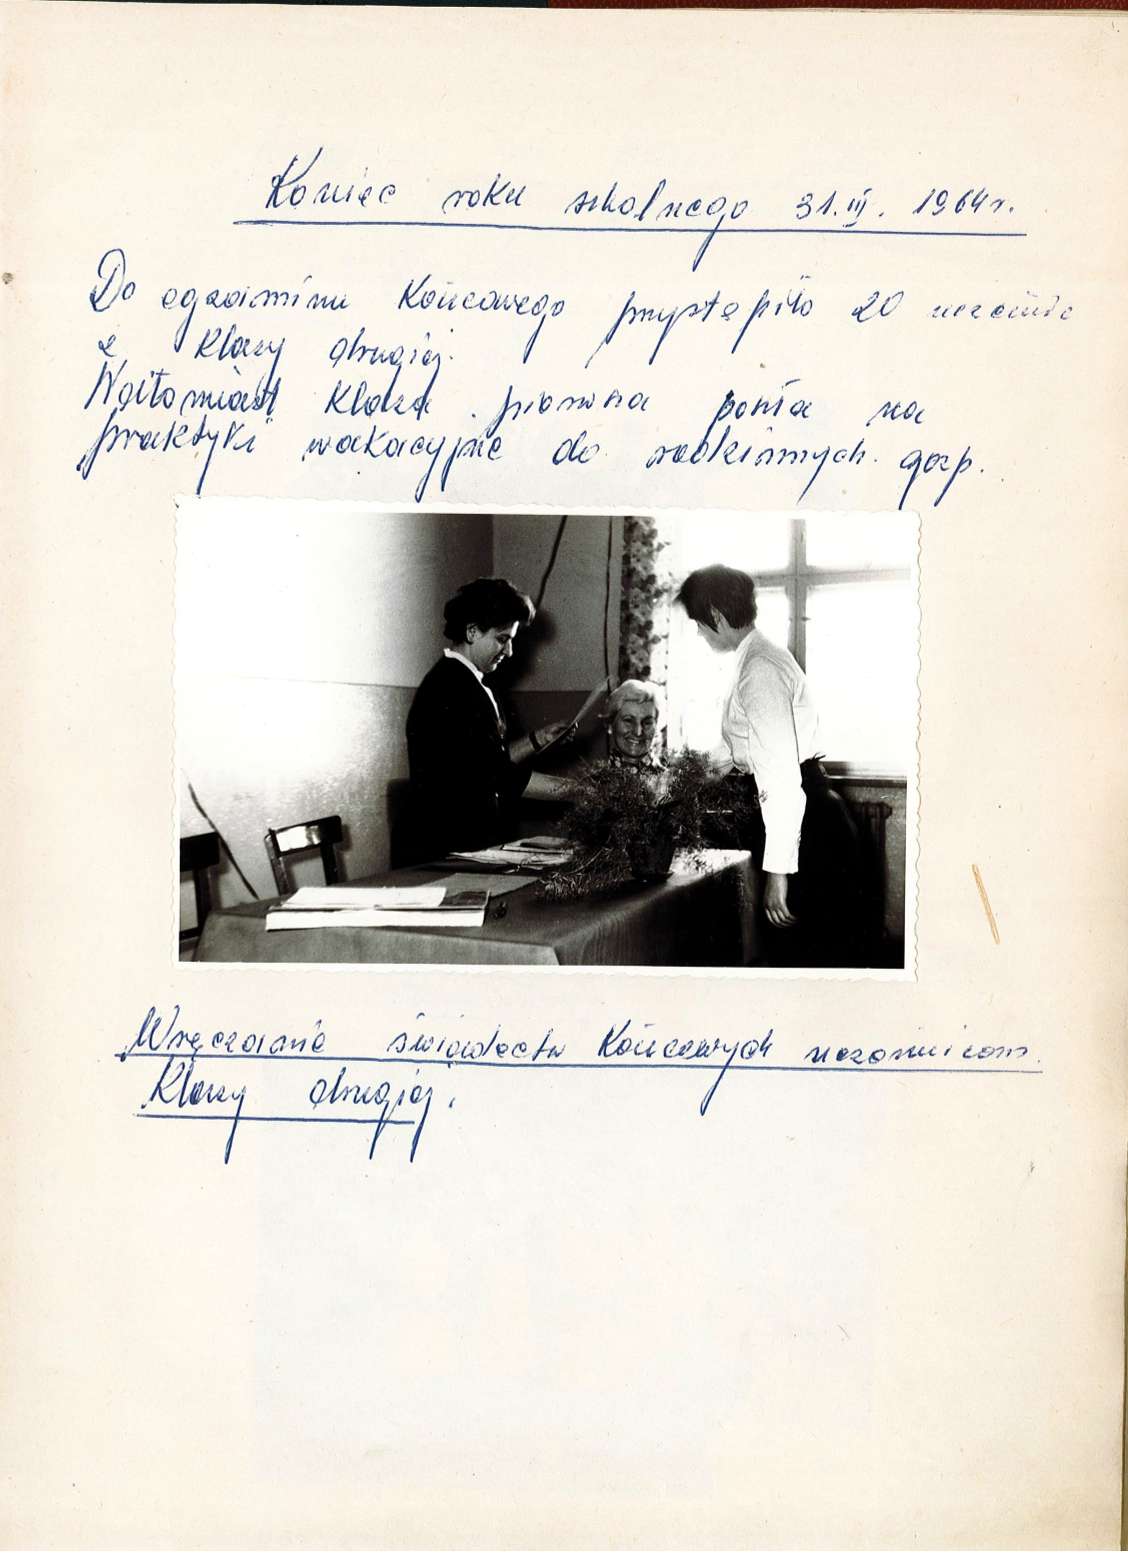 Koniec roku szkolnego 31.III. 1964r.
Do egzaminu końcowego przystąpiło 20 uczennic
z klasy drugiej.
Natomiast klasa pierwsza poszła na
praktyki wakacyjne do rodzinnych gosp.
Wręczanie świadectw końcowych uczennicom
klasy drugiej.